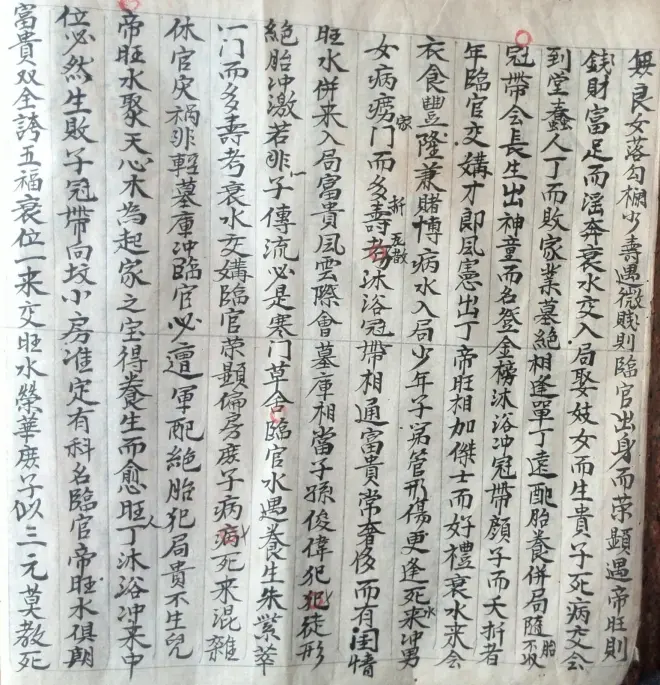 無良女落勾欄少壽遇微賤則臨官出身而荣顕遇帝旺則
錢財富足而淫奔衰水交入局娶妓女而生貴子死病交会
到堂蠢人丁而敗家業墓絕相逢單丁遠配胎養併局随胎不収
冠帶会長生出神童而名登金榜沐浴冲冠帶顧子而夭折者
年臨官交媾才郎風憲出丁帝旺相加傑士而好禮衰水来会
衣食豐隆兼賭博病水入局少年子弟管形傷更逢死水来冲男
女病癆家门而多壽折无救沐浴冠帶相通富貴常奢侈而有闺情
旺水併来入局富貴風雲際會墓庫相當子孫俊偉犯徒形
絕胎冲激若非一子傳流必是寒门草舍臨官水遇養生朱紫萃
一门而多壽考衰水交媾臨官荣顕偏房庶子病死来混雜
休官灾禍非輕墓庫冲臨官必遭軍配絕胎犯局貴不生兒
帝旺水聚天心木為起家之宝得養生而愈旺人丁沐浴冲来中
位必然生敗子冠帶向坟小房准定有科名臨官帝旺水俱朝
富貴双全誇五福衰位一来交旺水榮華庶子似三元莫教死